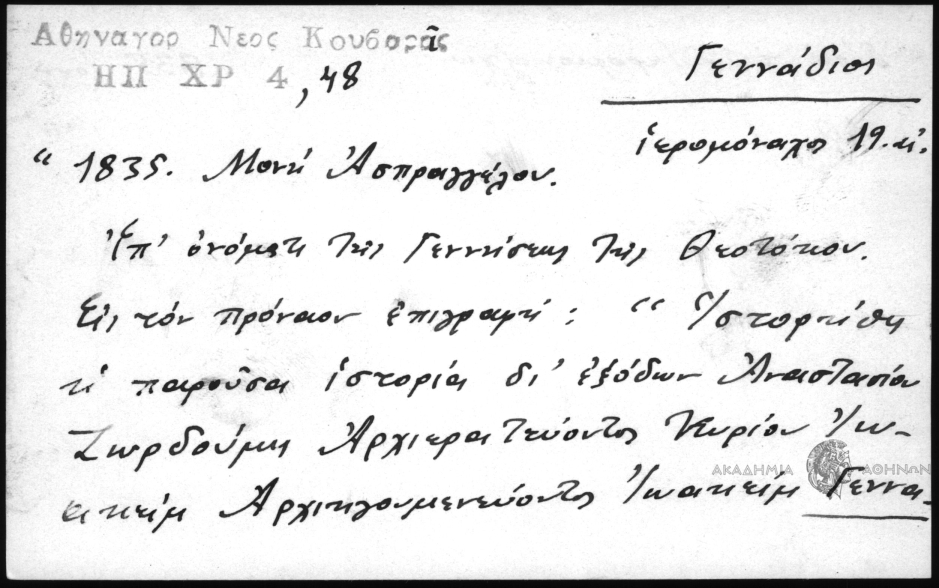 Αθηναγορ Νεος Κουβαρᾶς
ΗΠ ΧΡ 4, 48
Γεννάδιος
ἱερομόναχος 19. αἰ.
“ 1835. Μονή Ἀσπραγγέλου.
Ἐπ’ ὀνόματι τῆς Γεννήσεως τῆς Θεοτόκου.
Εἰς τόν πρόναον ἐπιγραφή : “ Ἱστορήθη
ἡ παροῦσα ἱστορία δι’ ἐξόδων Ἀναστασίου
Ἀρχιερατεύοντος Κυρίου Ἰω-
ακείμ Ἀρχιηγουμενεύοντος Ἰωακείμ Γεννα-
ΑΚΑΔΗΜΙΑ ΑΘΗΝΩΝ